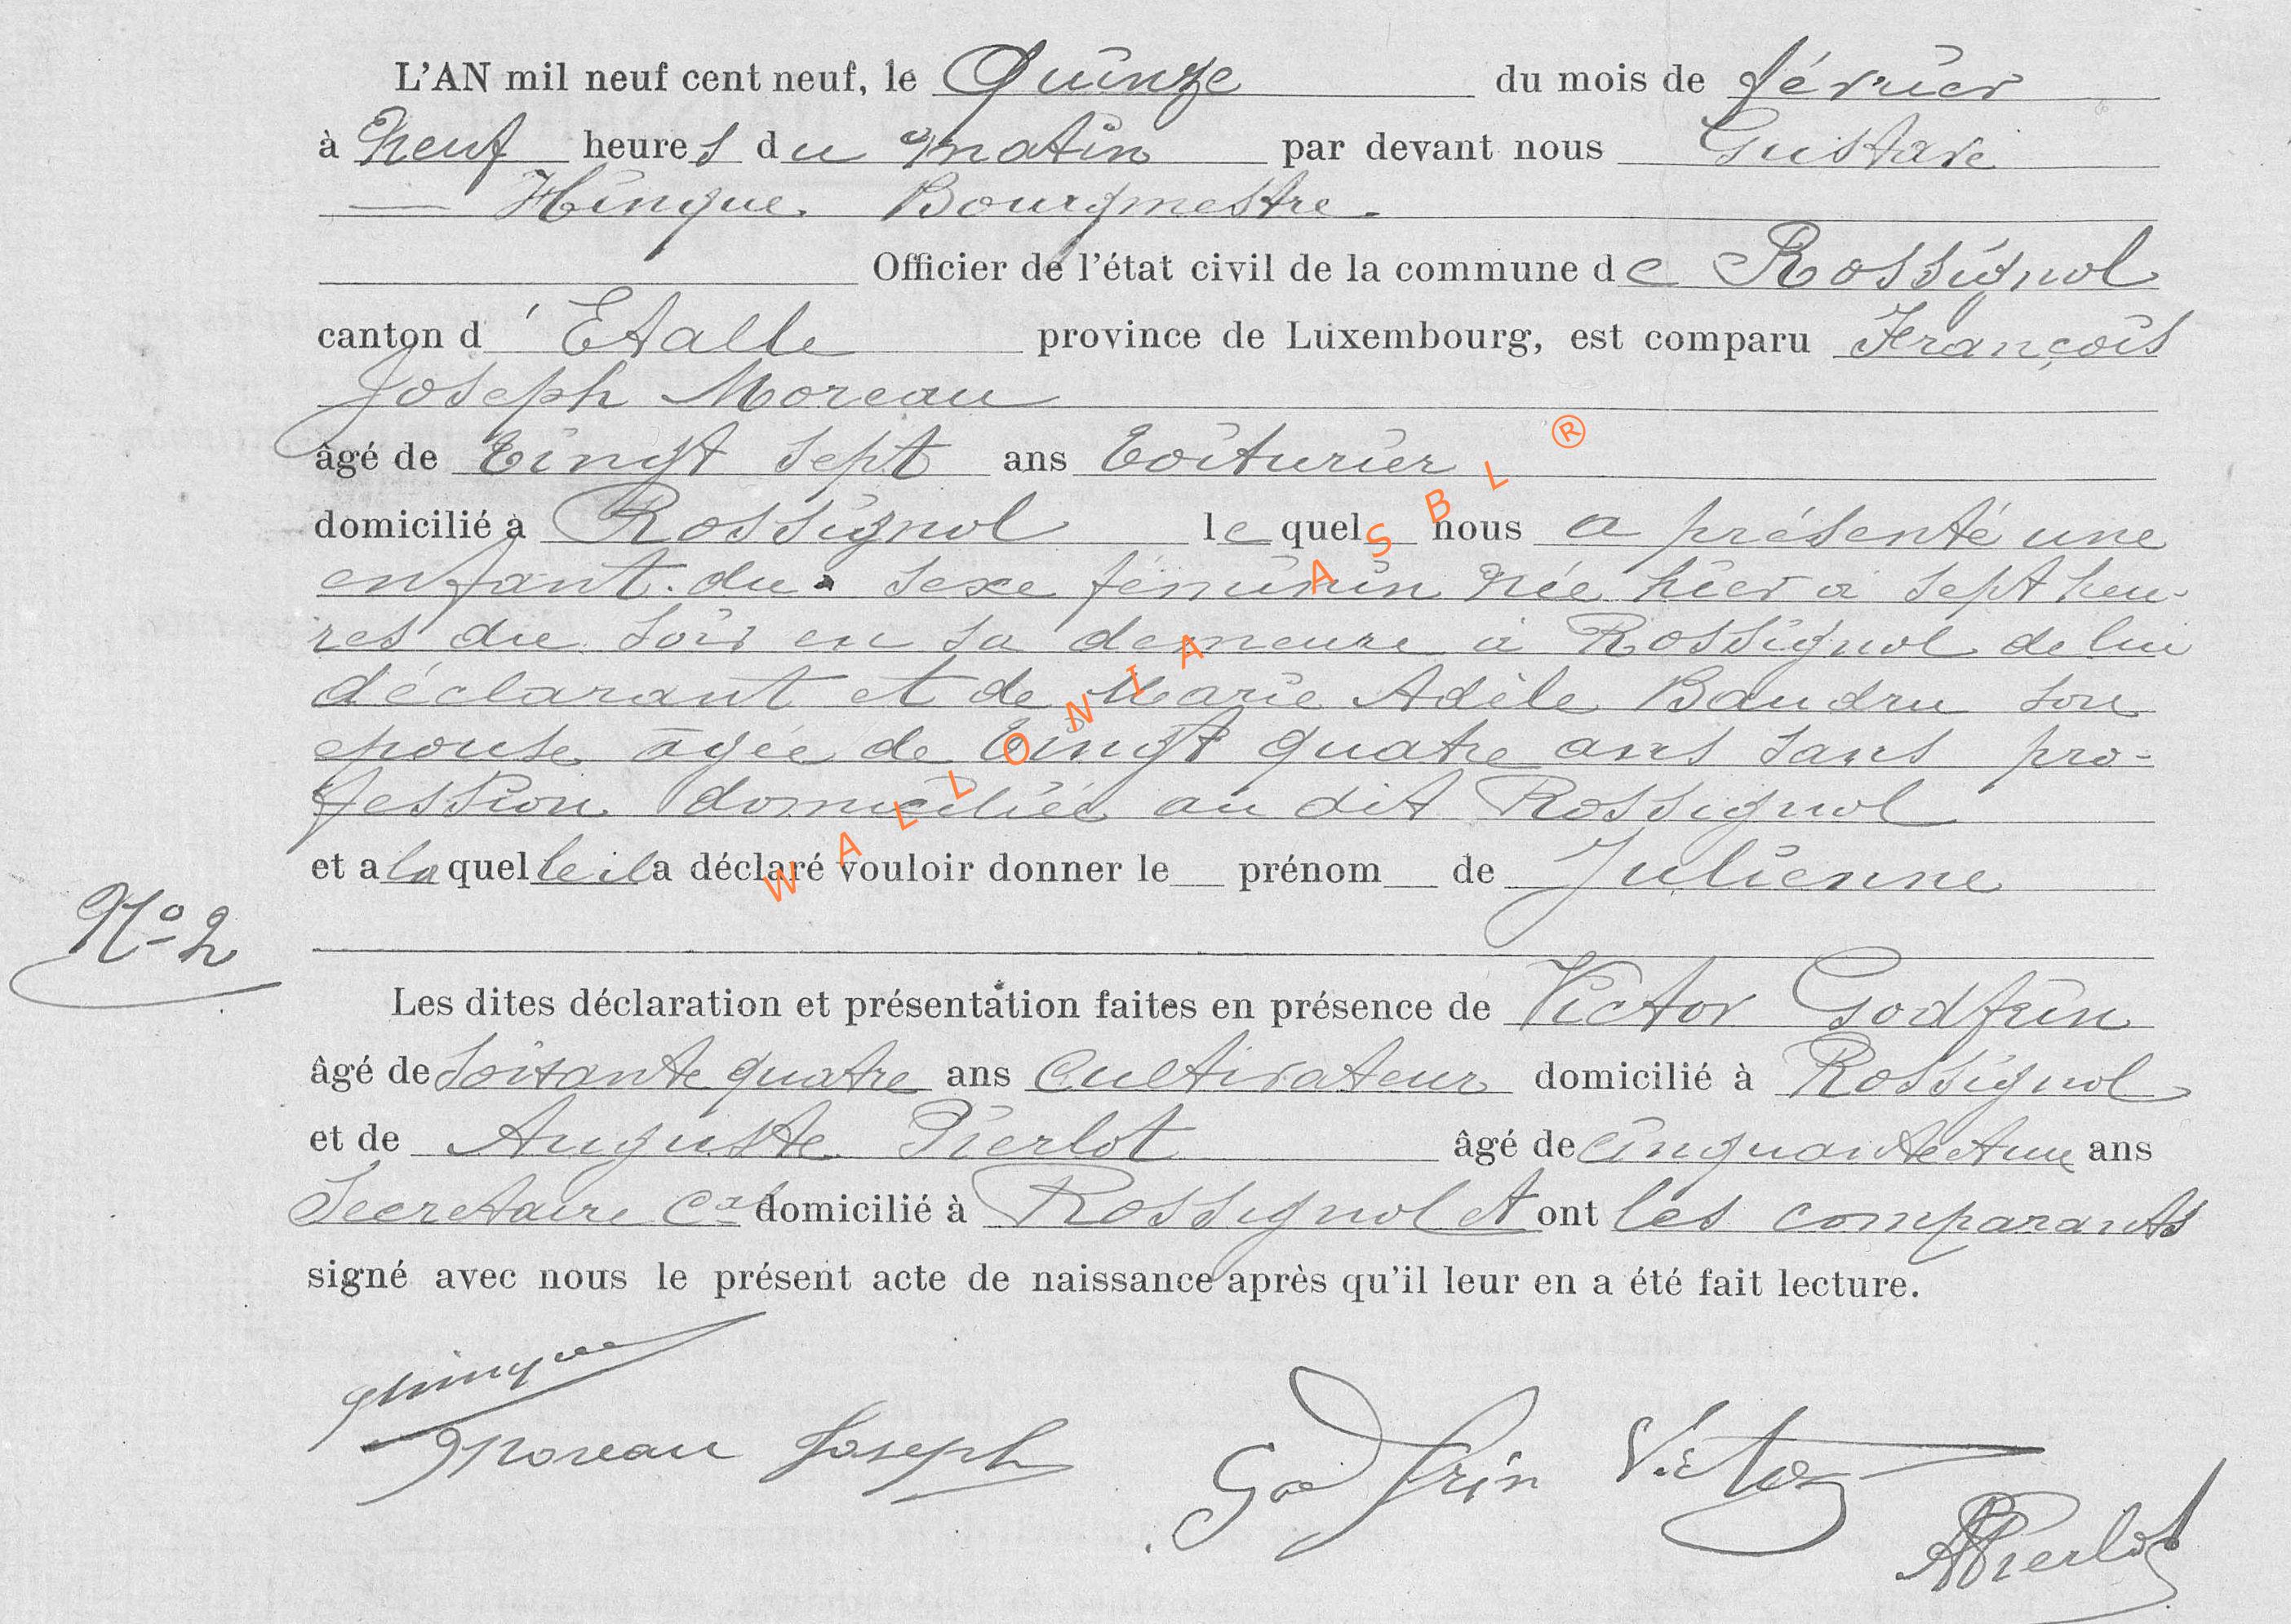 L'AN mil neuf cent neuf, le Quinze du mois de février
à Neuf heures du matin par devant nous Gustave
— Hinque Bourgmestre.
Officier de l'état civil de la commune de Rossignol
canton d'Etalle province de Luxembourg, est comparu François
Joseph Moreau
âgé de Vingt sept ans Voiturier
domicilié à Rossignol lequel nous a présenté une
enfant du sexe féminin née hier à sept heu-
res du soir en sa demeure à Rossignol de lui
déclarant et de Marie Adèle Baudru son
épouse âgée de Vingt quatre ans sans pro-
fession domiciliée au dit Rossignol
et a laquelle il a déclaré vouloir donner le prénom de Julienne
No 2
Les dites déclaration et présentation faites en présence de Victor Godfrin
âgé de soixante quatre ans Cultivateur domicilié à Rossignol
et de Auguste Pierlot âgé de cinquante et une ans
Secretaire Cal domicilié à Rossignol et ont les comparants
signé avec nous le présent acte de naissance après qu'il leur en a été fait lecture.
Hinque
Moreau Joseph
Godfrin Victor
APierlot
WALLONIA ASBL ®